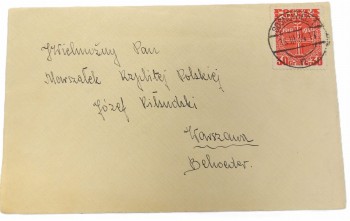 JWielmożny Pan
Marszałek Rzplitej Polskiej
Józef Piłsudski
Warszawa
Belweder.
50 50